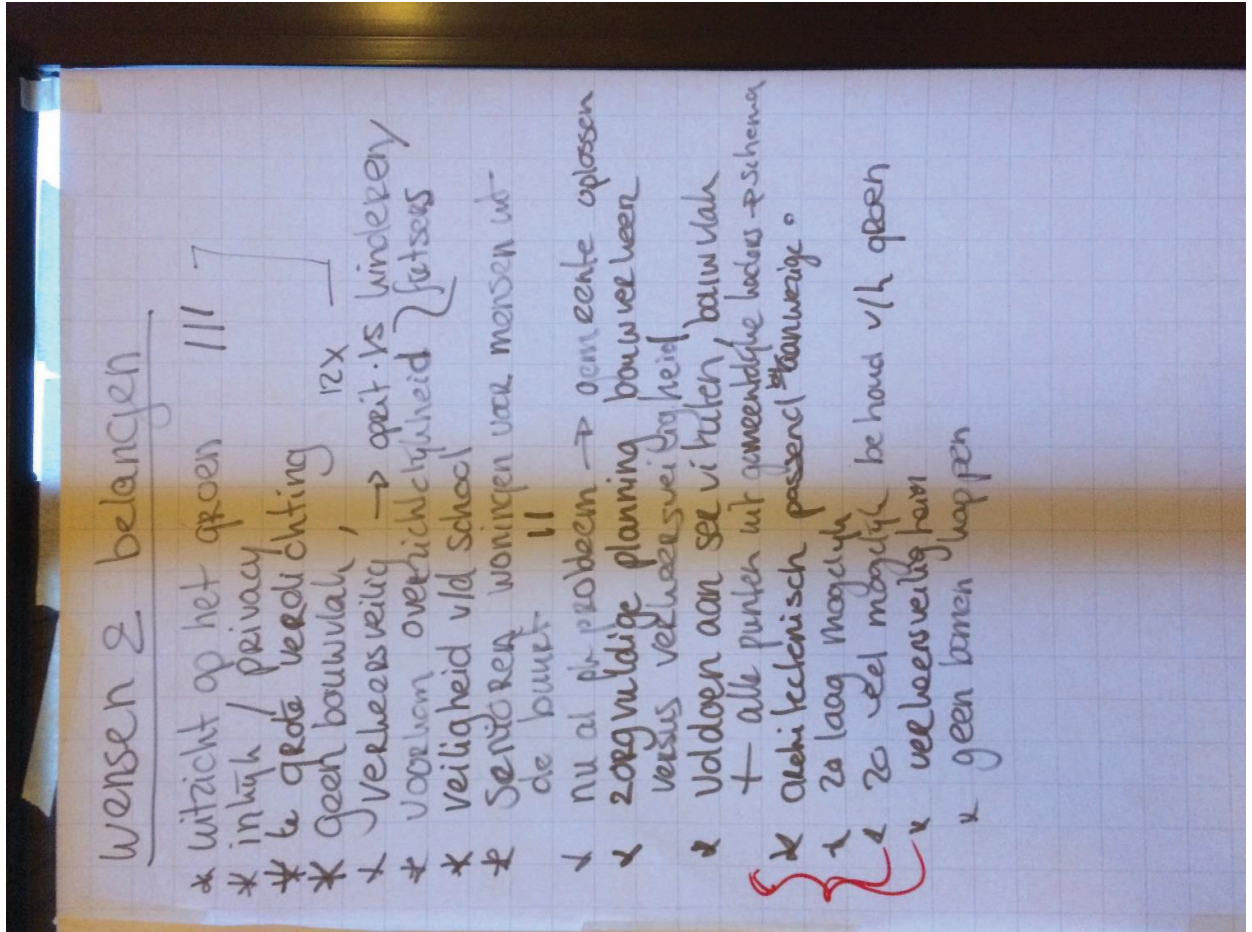 wensen & belangen
* uitzicht op het groen III
* inkijk / privacy
* te grote verdichting
* geen bouwvlak, 12x
* verkeersveilig → oprit vs kinderen/
* voorkom overzichtelijkheid fietsers
* veiligheid v/d school
* senioren woningen voor mensen uit
de buurt II
* nu al pr probleem → gemeente oplossen
* zorgvuldige planning bouwverkeer
versus verkeersveiligheid
* voldoen aan servituten, bouwvlak
+ alle punten uit gemeentelijke kaders → schema
* architectonisch passend bij aanwezige.
* zo laag mogelijk
* zo veel mogelijk behoud v/h groen
* verkeersveiligheid
* geen bomen kappen